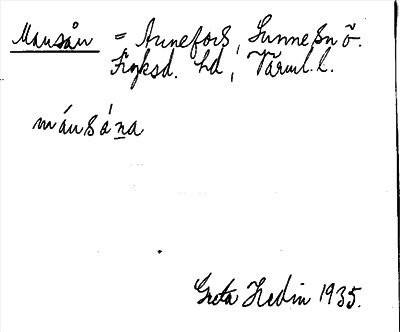 Mausån = Arnefors, Sunne sn ö.
Fryksd. hd, Värml. l.
máusá́na
Greta Hedin 1935.